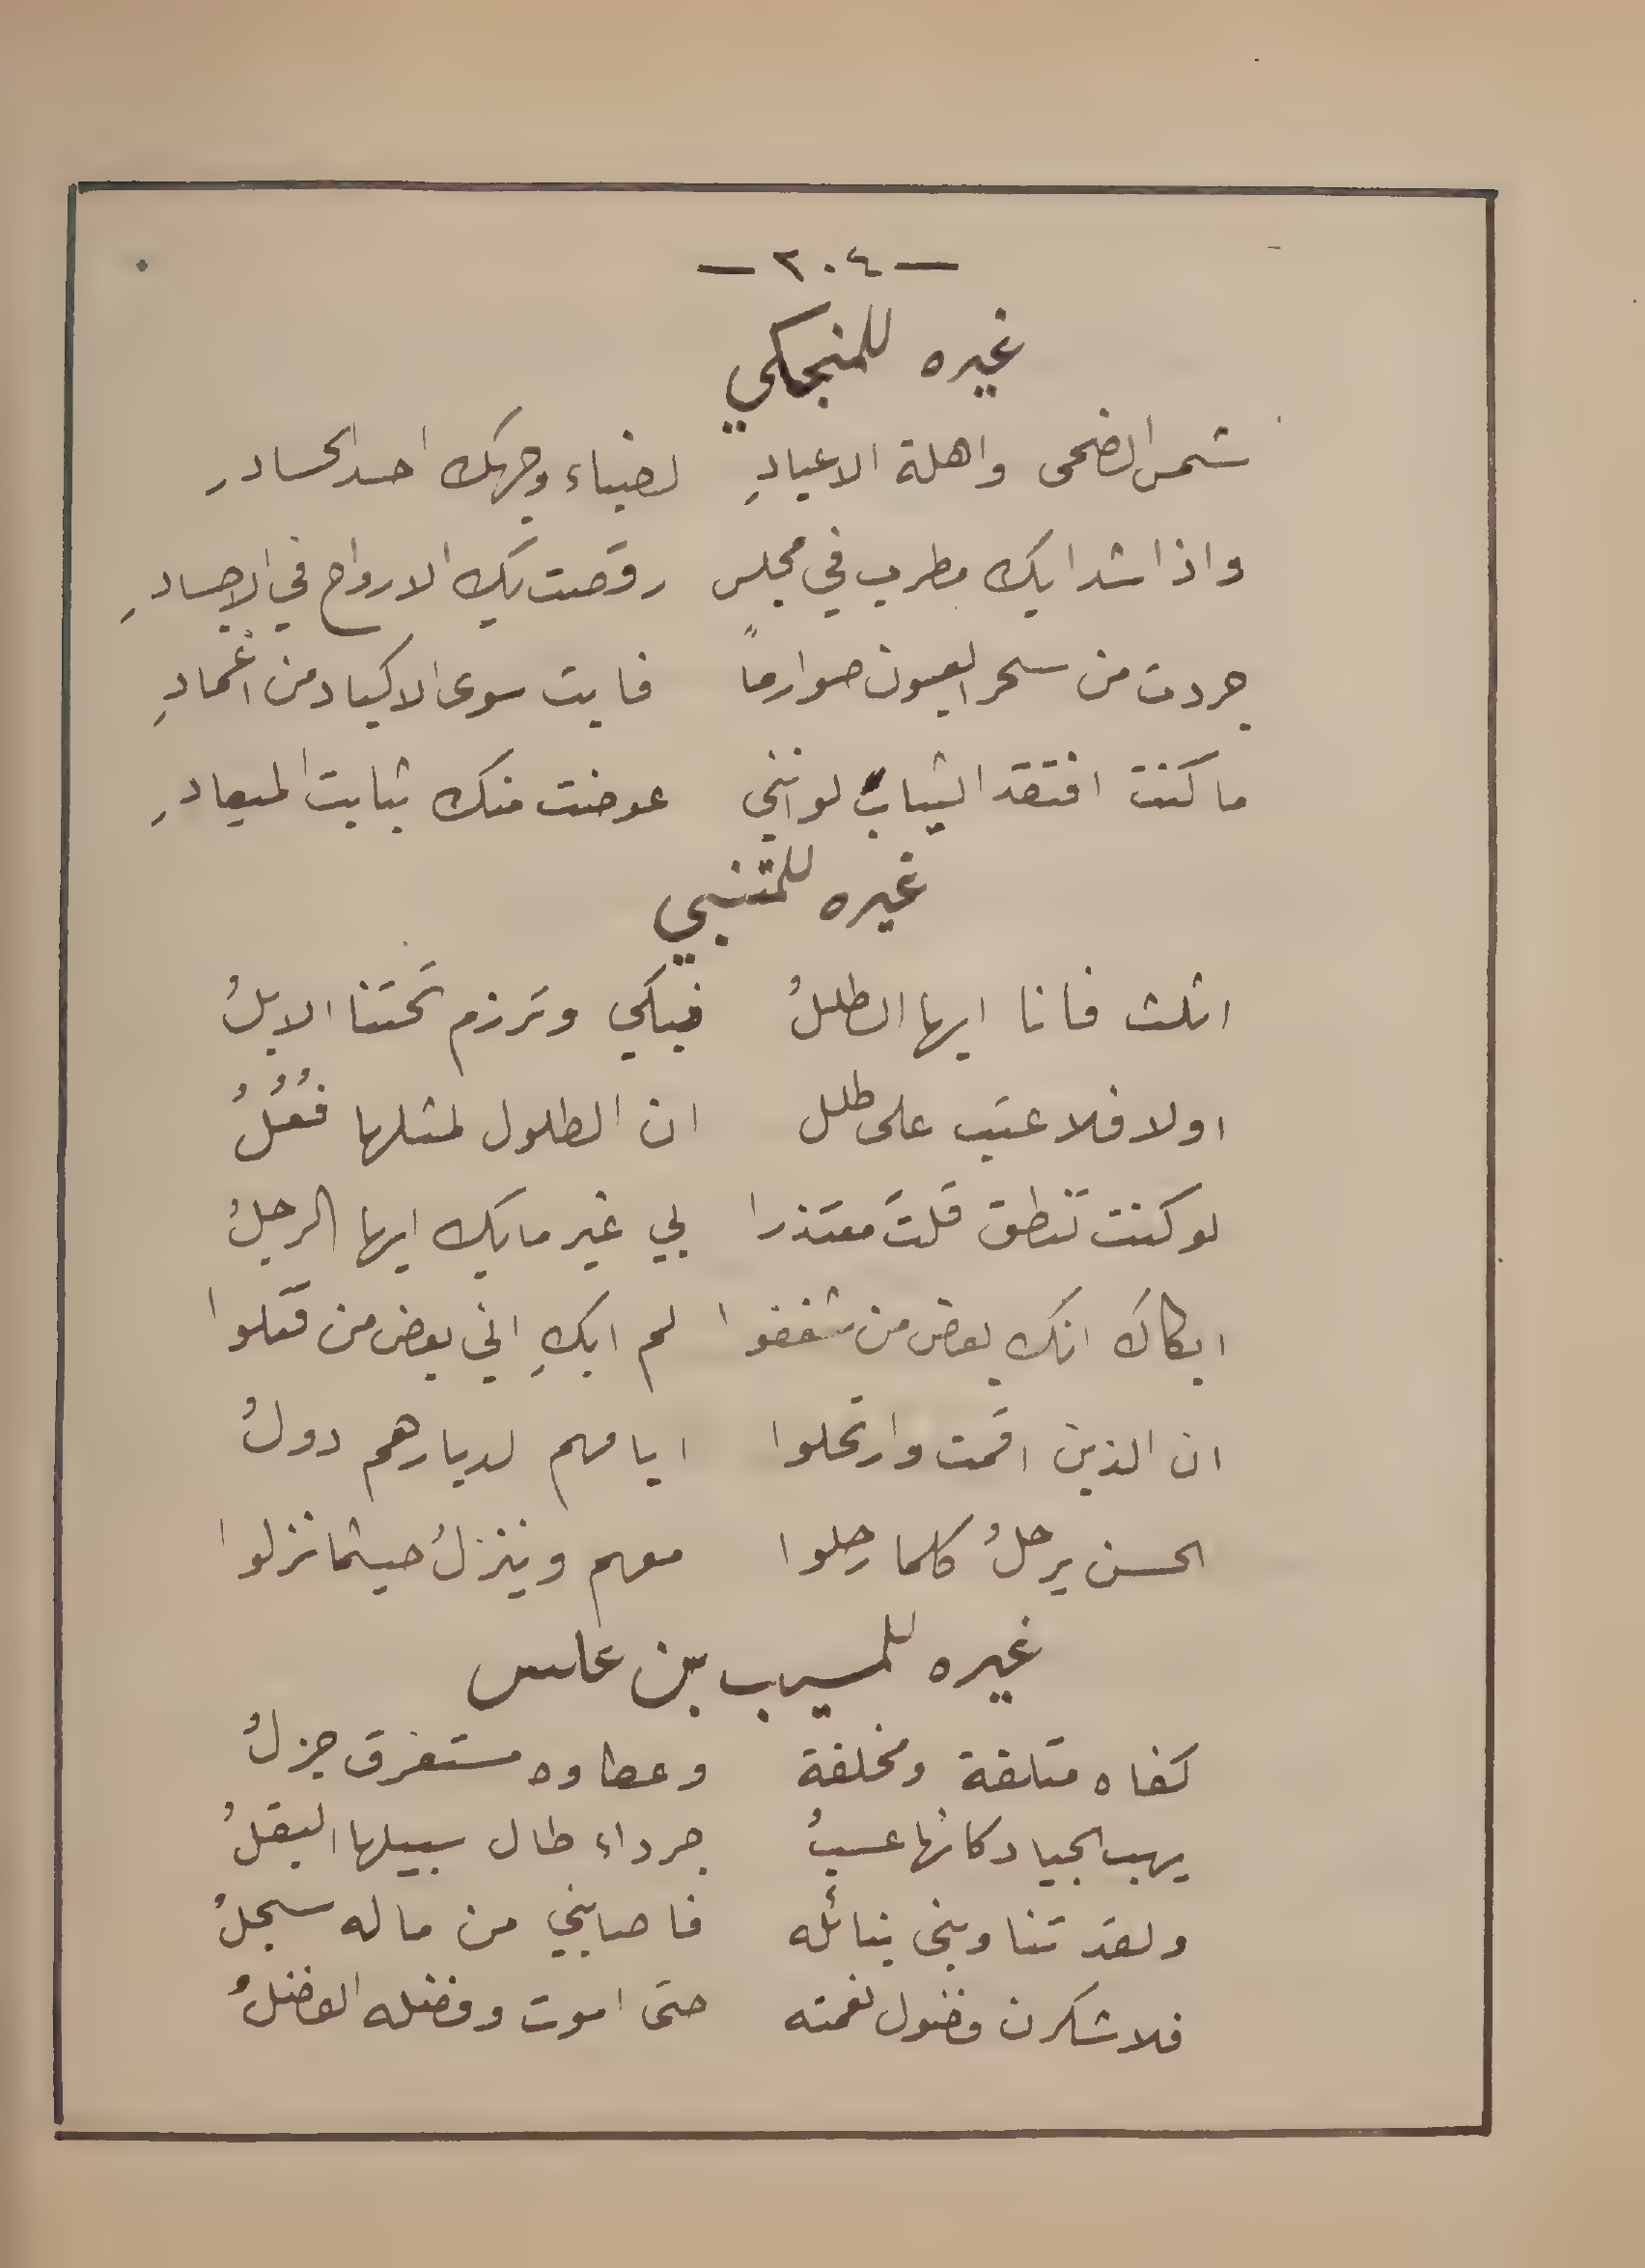 — ٢٠٤ —
غيره للمنجكي
شمس الضحى واهلة الاعيادِ لضياء وجهك احسد الحسادِ
واذا شدا بك مطرب في مجلس رقصت بك الارواح في الاجسادِ
جردت من سحر العيون صوارماً فابت سوى الاكباد من أغمادِ
ما كنت افتقد الشباب لو انني عوضت منك بثابت الميعادِ
غيره للمتنبي
اثلث فانا ايها الطللُ نبكي وترزم تحتنا الابلُ
اولا فلا عتب على طلل ان الطلول لمثلها فُعُلُ
لو كنت تنطق قلتَ معتذرا بي غير ما بك ايها الرجلُ
ابكاك انك بعض من شغفوا لم ابكِ اني بعض من قتلوا
ان الذين اقمت وارتحلوا ايامهم لديارهم دولُ
الحسن يرحلُ كلما رحلوا معهم وينزلُ حيثما نزلوا
غيره للمسيب بن علس
كفاه متلفة ومخلفة وعطاوه مستغرق جزلُ
يهب الجياد كانها عسبُ جرداء طال سبيلها البقلُ
ولقد تناولني بنائله فاصابني من ماله سجلُ
فلاشكرن فضول نعمته حتى اموت وفضله الفضلُ